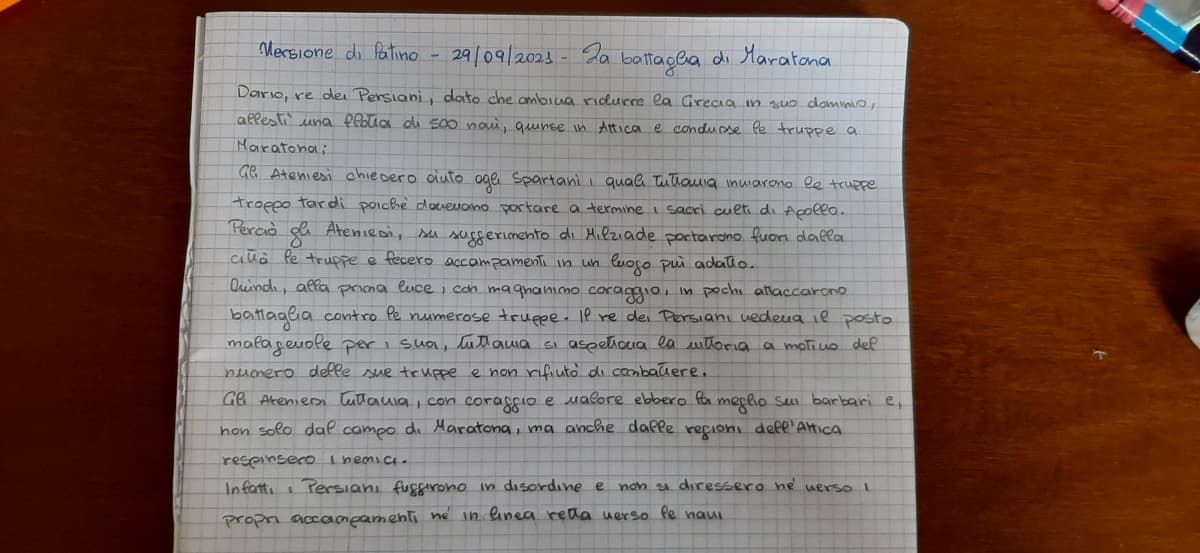 Versione di latino - 29/09/2021 - La battaglia di Maratona
Dario, re dei Persiani, dato che ambiva ridurre la Grecia in suo dominio,
allestì una flotta di 500 navi, giunse in Attica e condusse le truppe a
Maratona;
Gli Ateniesi chiesero aiuto agli Spartani i quali tuttavia inviarono le truppe
troppo tardi poiché dovevano portare a termine i sacri culti di Apollo.
Perciò gli Ateniesi, su suggerimento di Milziade portarono fuori dalla
città le truppe e fecero accampamenti in un luogo più adatto.
Quindi, alla prima luce, con magnanimo coraggio, in pochi attaccarono
battaglia contro le numerose truppe. Il re dei Persiani vedeva il posto
malagevole per i suoi, tuttavia si aspettava la vittoria a motivo del
numero delle sue truppe e non rifiutò di conbattere.
Gli Ateniesi tuttavia, con coraggio e valore ebbero la meglio sui barbari e,
non solo dal campo di Maratona, ma anche dalle regioni dell'Attica
respinsero i nemici.
Infatti i Persiani fuggirono in disordine e non si diressero né verso i
propri accampamenti né in linea retta verso le navi